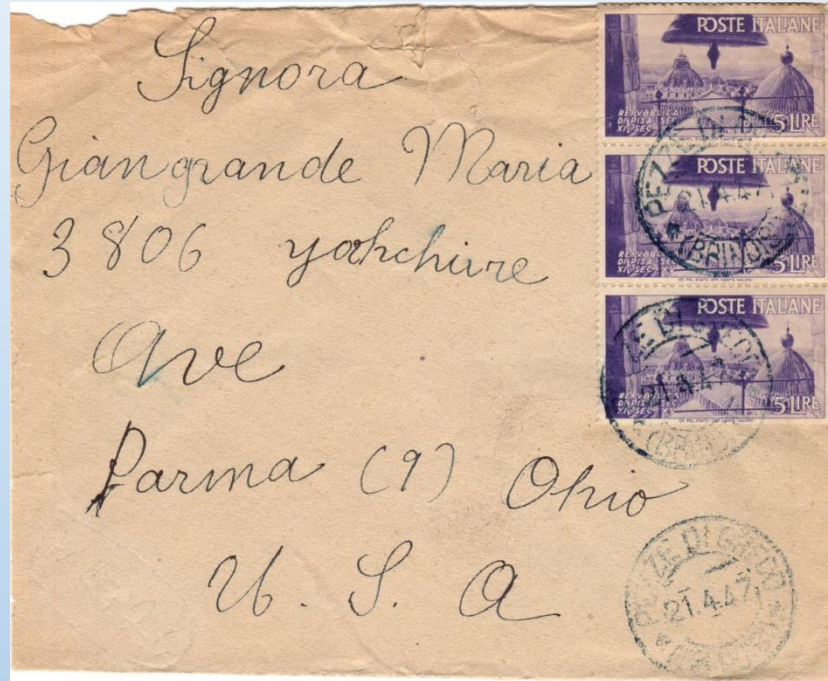 Signora
Giangrande Maria
3806 yorkchire
Ave
Parma (9) Ohio
U. S. A
POSTE ITALIANE
REPVBBLICA
DI PISA SEC
XIV SEC
5 LIRE
POSTE ITALIANE
REPVBBLICA
DI PISA SEC
XIV SEC
5 LIRE
POSTE ITALIANE
REPVBBLICA
DI PISA SEC
XIV SEC
5 LIRE
21.4.47
21.4.47
PEZZE DI GRECO
21.4.47
(BRINDISI)